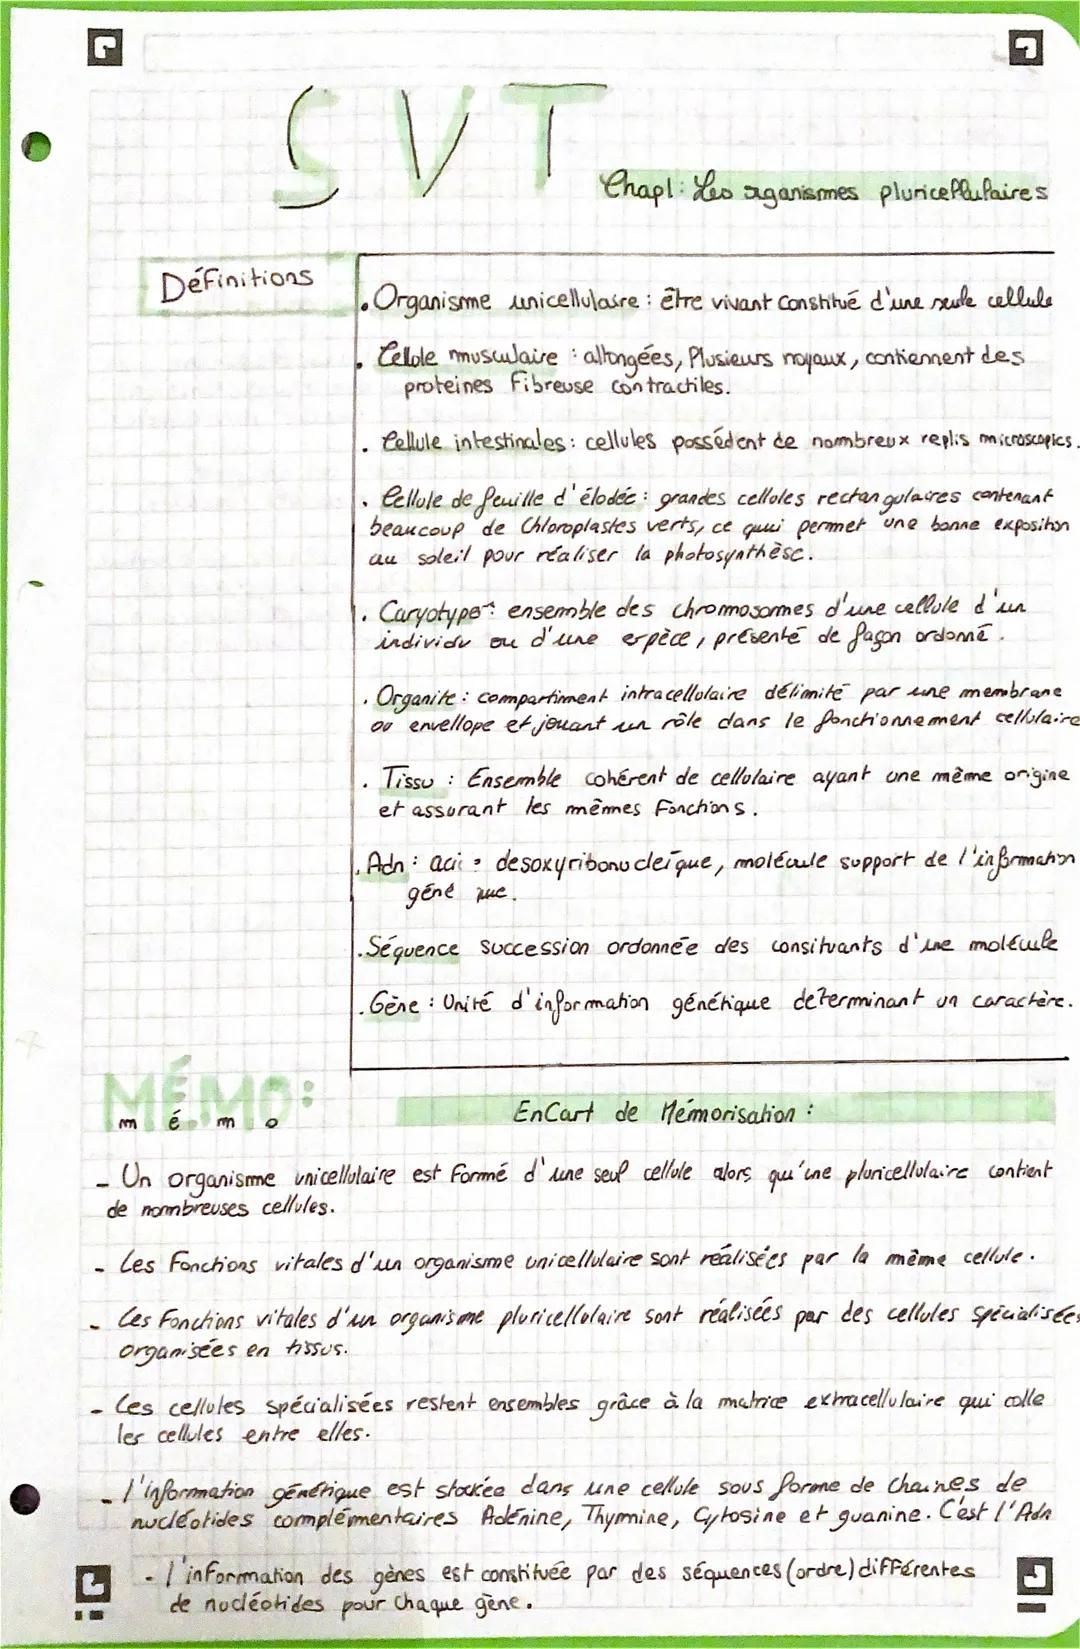 SVT
Chap1: Les organismes pluricellulaires
Définitions
. Organisme unicellulaire : être vivant constitué d'une seule cellule
. Cellule musculaire : allongées, Plusieurs noyaux, contiennent des
proteines Fibreuse contractiles.
. Cellule intestinales : cellules possédent de nombreux replis microscopics.
. Cellule de feuille d'élodée : grandes cellules rectangulaires contenant
beaucoup de Chloroplastes verts, ce qui permet une bonne exposition
au soleil pour réaliser la photosynthèse.
. Caryotype : ensemble des chromosomes d'une cellule d'un
individu ou d'une espèce, présenté de façon ordonné.
. Organite : compartiment intracellulaire délimité par une membrane
ou envellope et jouant un rôle dans le fonctionnement cellulaire
. Tissu : Ensemble cohérent de cellulaire ayant une même origine
et assurant les mêmes Fonctions.
. Adn : desoxyribonucleïque, molécule support de l'information
. Séquence succession ordonnée des consituants d'une molécule
. Gène : Unité d'information génétique determinant un caractère.
MÉMO:
m é m o
EnCart de Mémorisation :
- Un organisme unicellulaire est Formé d'une seul cellule alors qu'une pluricellulaire contient
de nombreuses cellules.
- Les Fonctions vitales d'un organisme unicellulaire sont réalisées par la même cellule.
- Les Fonctions vitales d'un organisme pluricellulaire sont réalisées par des cellules spécialisées
organisées en tissus.
- Les cellules spécialisées restent ensembles grâce à la matrice extracellulaire qui colle
les cellules entre elles.
- l'information génétique est stockée dans une cellule sous forme de chaines de
nucléotides complémentaires Adénine, Thymine, Cytosine et guanine. C'est l'Adn
- l'information des gènes est constituée par des séquences (ordre) différentes
de nucléotides pour chaque gène.